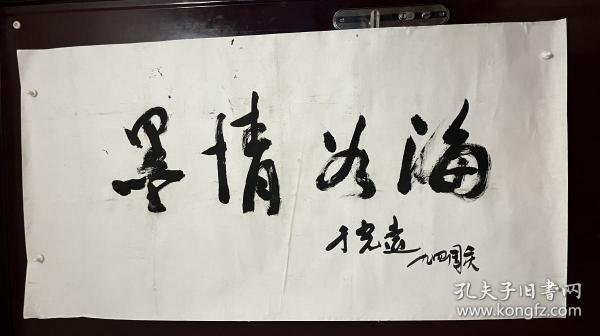 墨情为海
于光远
九四国庆
孔夫子旧书网
www.kongfz.com